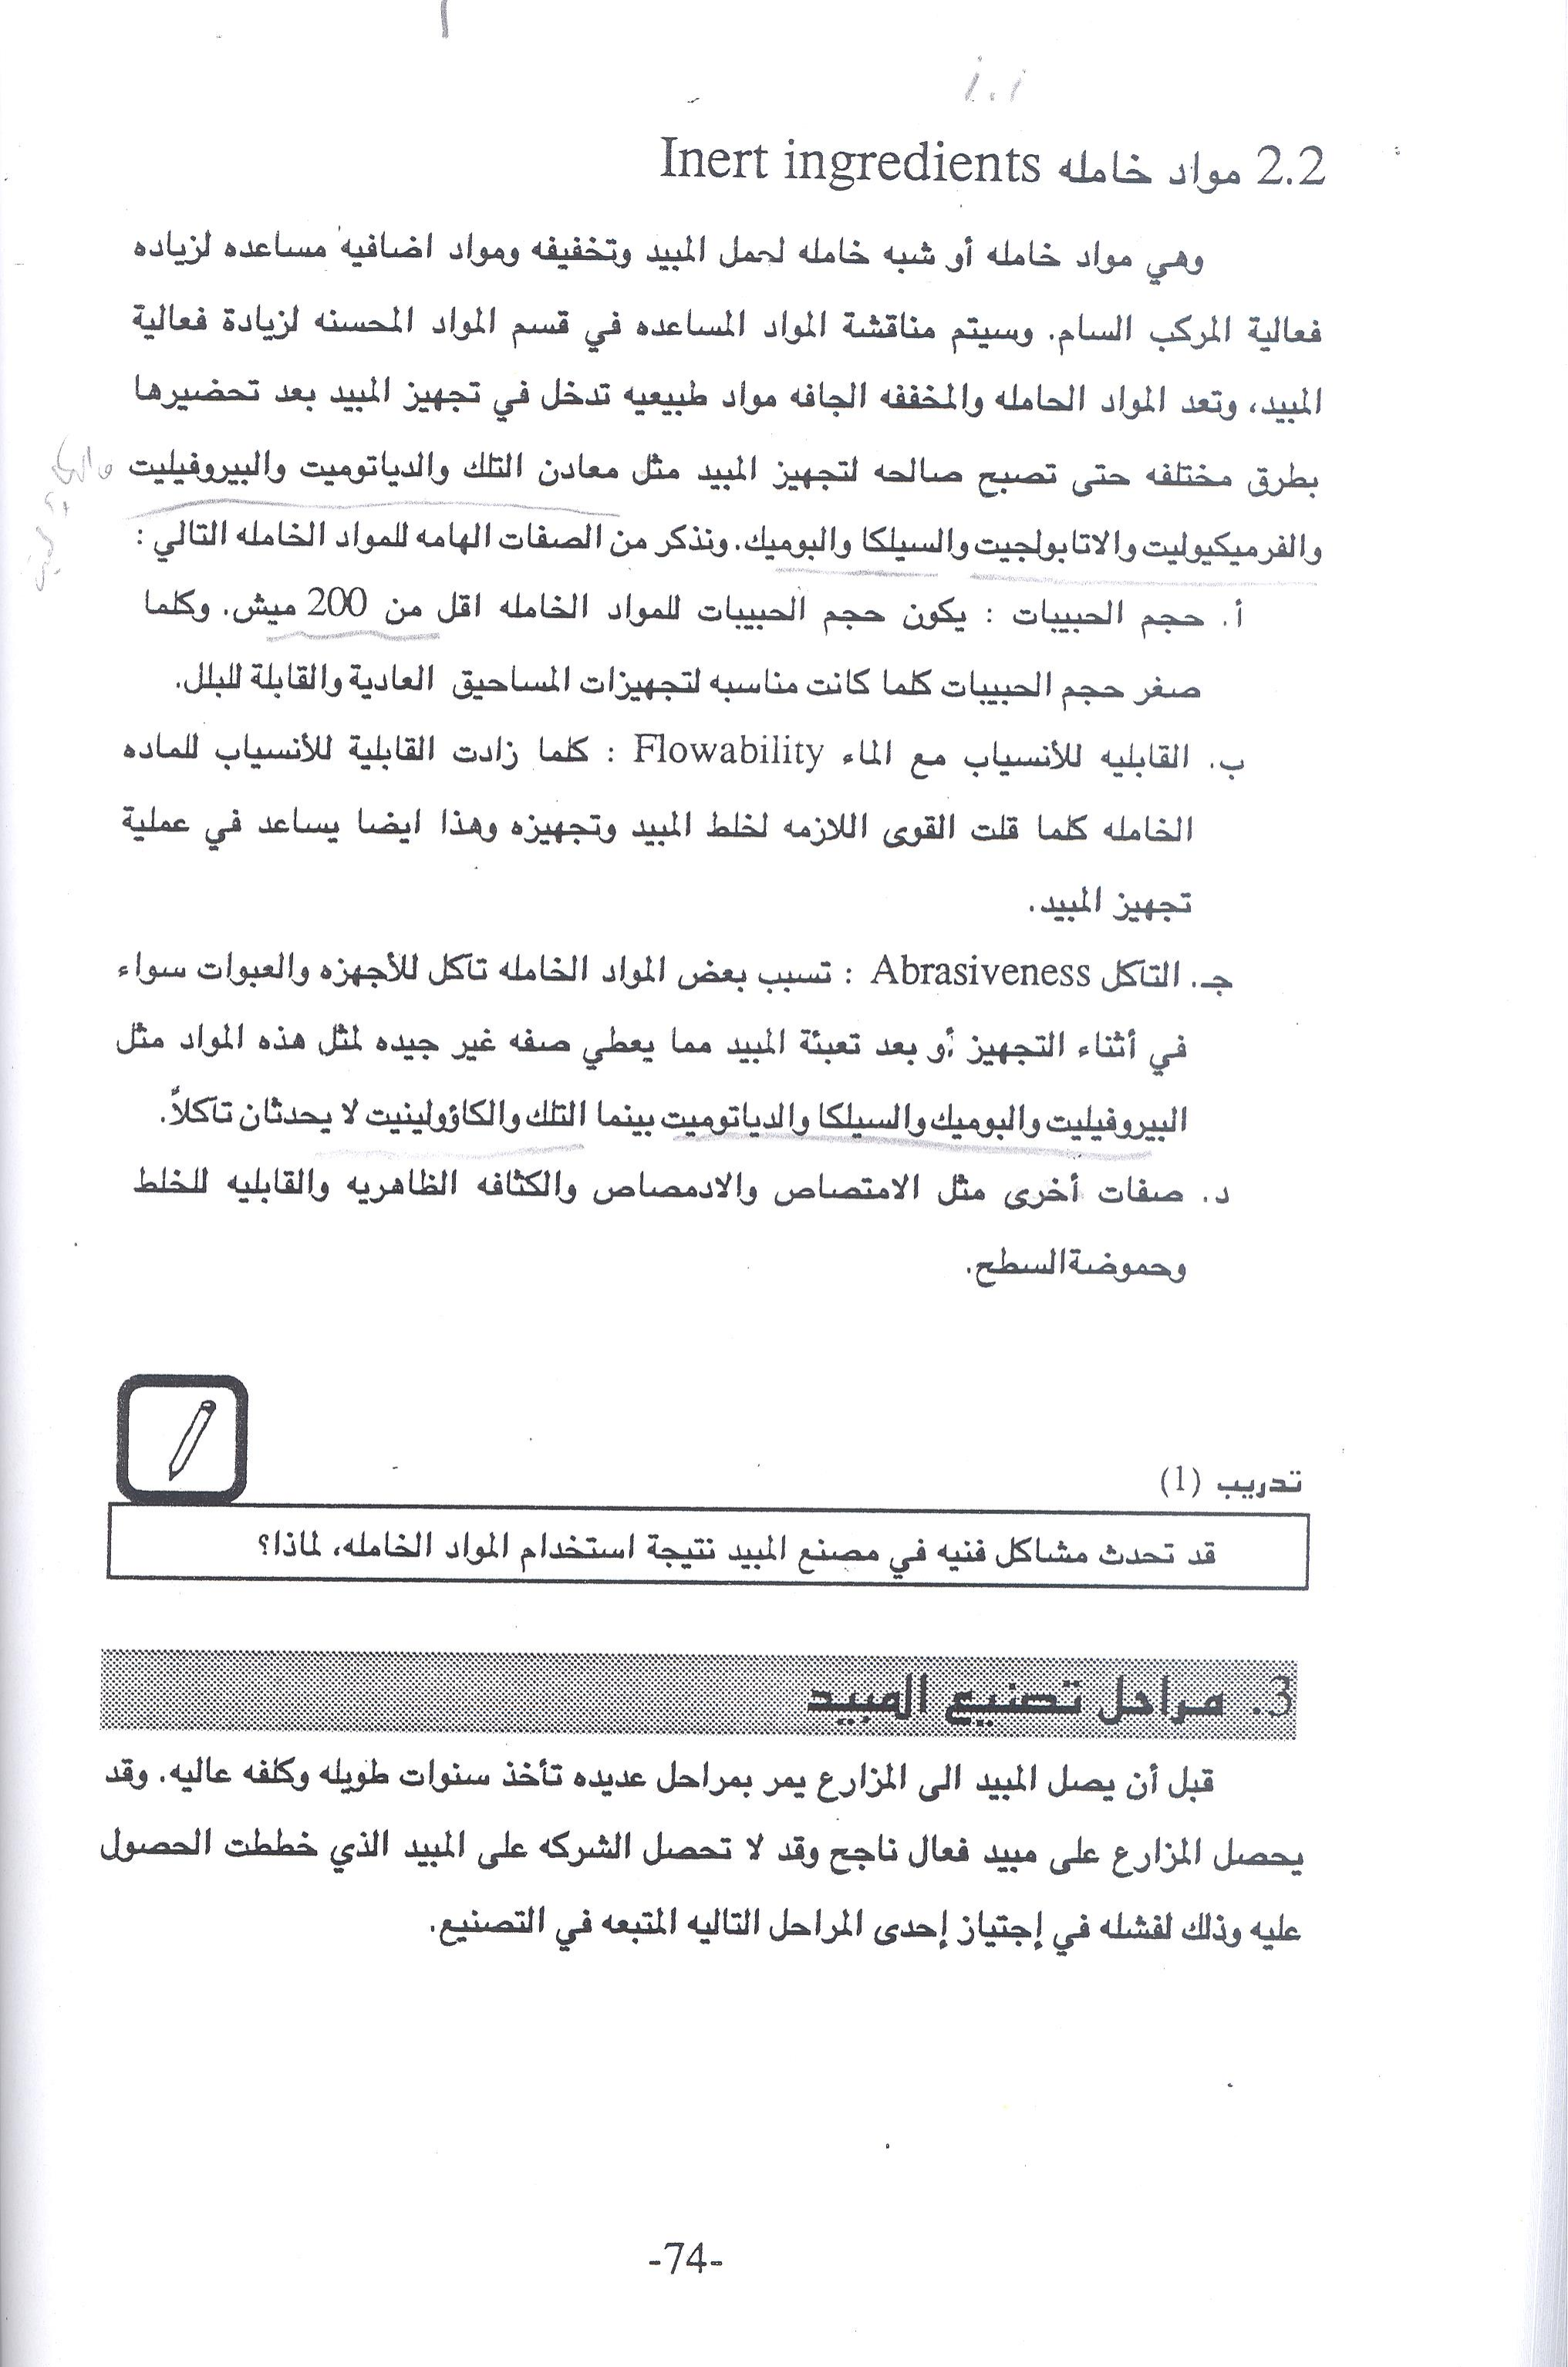 2.2 مواد خامله Inert ingredients
وهي مواد خامله أو شبه خامله لحمل المبيد وتخفيفه ومواد اضافيه مساعده لزياده
فعالية المركب السام. وسيتم مناقشة المواد المساعده في قسم المواد المحسنه لزيادة فعالية
المبيد، وتعد المواد الحامله والمخففه الجافه مواد طبيعيه تدخل في تجهيز المبيد بعد تحضيرها
بطرق مختلفه حتى تصبح صالحه لتجهيز المبيد مثل معادن التلك والدياتوميت والبيروفيليت
والفرميكيوليت والاتابولجيت والسيلكا والبوميك. ونذكر من الصفات الهامه للمواد الخامله التالي :
أ. حجم الحبيبات : يكون حجم الحبيبات للمواد الخامله اقل من 200 ميش. وكلما
صغر حجم الحبيبات كلما كانت مناسبه لتجهيزات المساحيق العادية والقابلة للبلل.
ب. القابليه للأنسياب مع الماء Flowability : كلما زادت القابلية للأنسياب للماده
الخامله كلما قلت القوى اللازمه لخلط المبيد وتجهيزه وهذا ايضا يساعد في عملية
تجهيز المبيد.
جـ. التاكل Abrasiveness : تسبب بعض المواد الخامله تاكل للأجهزه والعبوات سواء
في أثناء التجهيز أو بعد تعبئة المبيد مما يعطي صفه غير جيده لمثل هذه المواد مثل
البيروفيليت والبوميك والسيلكا والدياتوميت بينما التلك والكاؤولينيت لا يحدثان تاكلاً.
د. صفات أخرى مثل الامتصاص والادمصاص والكثافه الظاهريه والقابليه للخلط
وحموضة السطح.
تدريب (1)
قد تحدث مشاكل فنيه في مصنع المبيد نتيجة استخدام المواد الخامله، لماذا؟
3. مراحل تصنيع المبيد
قبل أن يصل المبيد الى المزارع يمر بمراحل عديده تأخذ سنوات طويله وكلفه عاليه. وقد
يحصل المزارع على مبيد فعال ناجح وقد لا تحصل الشركه على المبيد الذي خططت الحصول
عليه وذلك لفشله في إجتياز إحدى المراحل التاليه المتبعه في التصنيع.
-74-